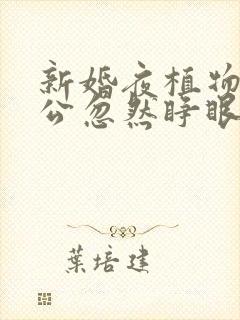 新婚夜植物
公忽然睁眼
葉培建